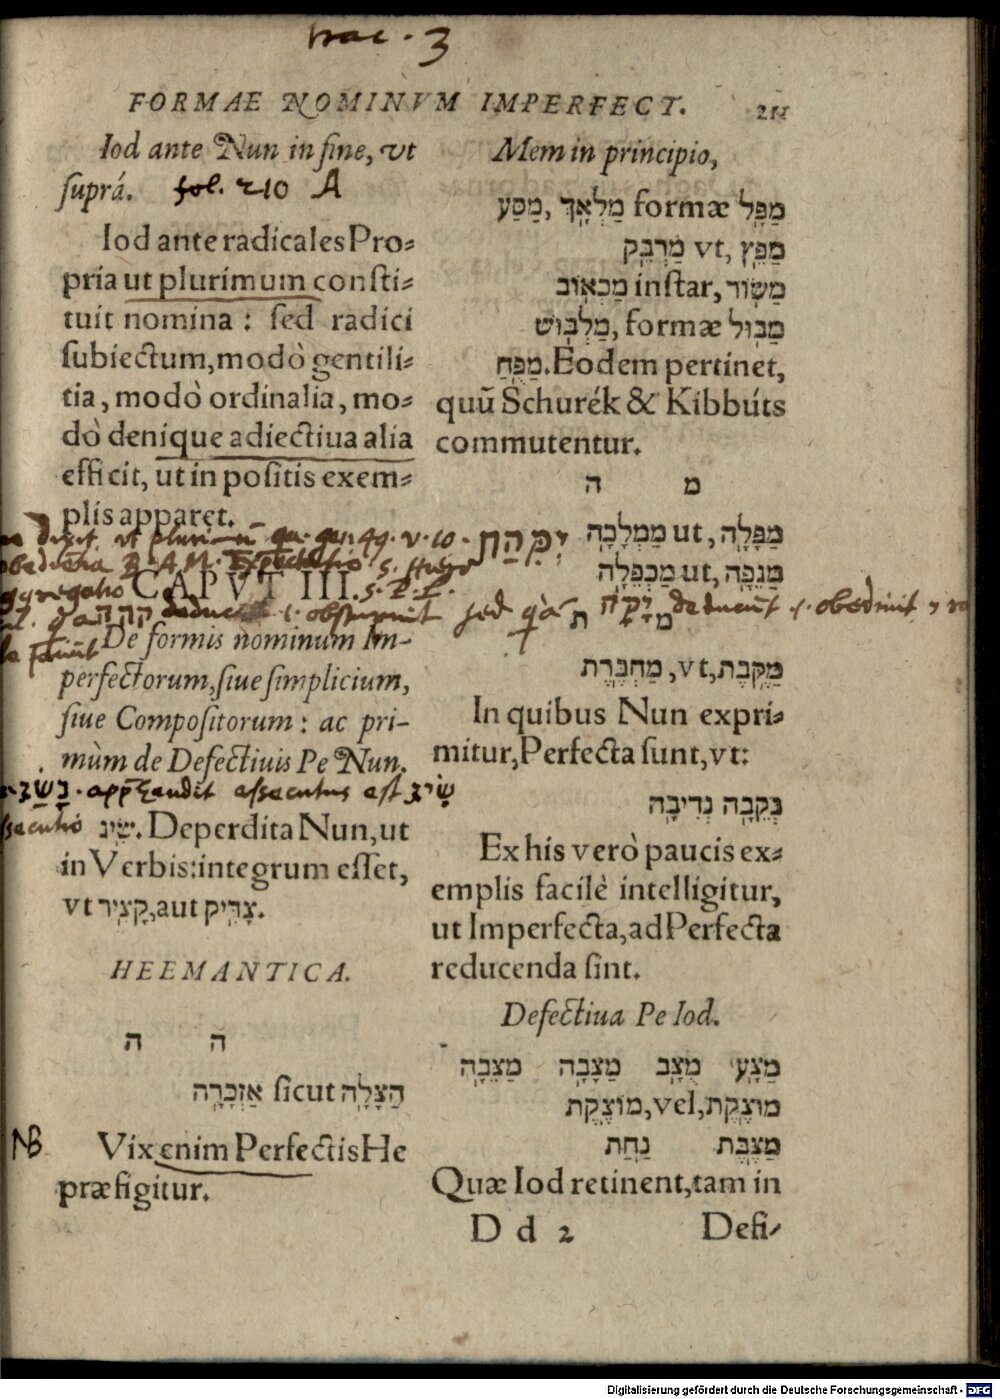 FORMAE NOMINVM IMPERFECT. 211
Iod ante Nun in fine, vt
suprá. fol. 210 A
Iod ante radicales Pro⸗
pria ut plurimum consti⸗
tuit nomina : sed radici
subiectum, modò gentili⸗
tia, modò ordinalia, mo⸗
dò denique adiectiua alia
efficit, ut in positis exem⸗
plis apparet.
CAPVT III.
De formis nominum Im-
perfectorum, siue simplicium,
siue Compositorum : ac pri-
mùm de Defectiuis Pe Nun.
שִׂיג. Deperdita Nun, ut
in Verbis: integrum esset,
vt קָצִיר, aut צָדִיק.
HEEMANTICA.
ה ה
הַצָּלָה sicut אַזְכָּרָה
NB Vix enim Perfectis He
præfigitur.
Mem in principio,
מַפָּל formæ מַלְאָךְ, מַסַּע
מַפֵּץ, vt מַרְבֵּק
מַשּׂוֹר, instar מַכְאוֹב
מַבּוּל formæ, מַלְבּוּשׁ
מַפֻּחַ. Eodem pertinet,
quũ Schurék & Kibbúts
commutentur.
מ ה
מַפָּלָה, ut מַמְלָכָה
מַגֵּפָה, ut מַכְפֵּלָה
מ ת
מַקֶּבֶת, vt, מַחְבֶּרֶת
In quibus Nun expri⸗
mitur, Perfecta sunt, vt:
נְקֵבָה נְדִיבָה
Ex his verò paucis ex⸗
emplis facilè intelligitur,
ut Imperfecta, ad Perfecta
reducenda sint.
Defectiua Pe Iod.
מַצָּע מֻצָּב מַצָּבָה מַצֵּבָה
מוּצֶקֶת, vel, מוֹצֶקֶת
מַצֶּבֶת נַחַת
Quæ Iod retinent, tam in
D d 2 Defi-
Digitalisierung gefördert durch die Deutsche Forschungsgemeinschaft - DFG